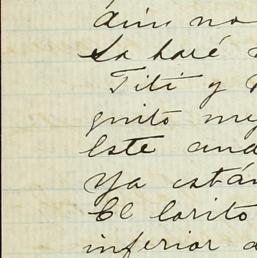 no
La haré
Titi y
gnito me
Este and
Ya están
El lorito
inferior a